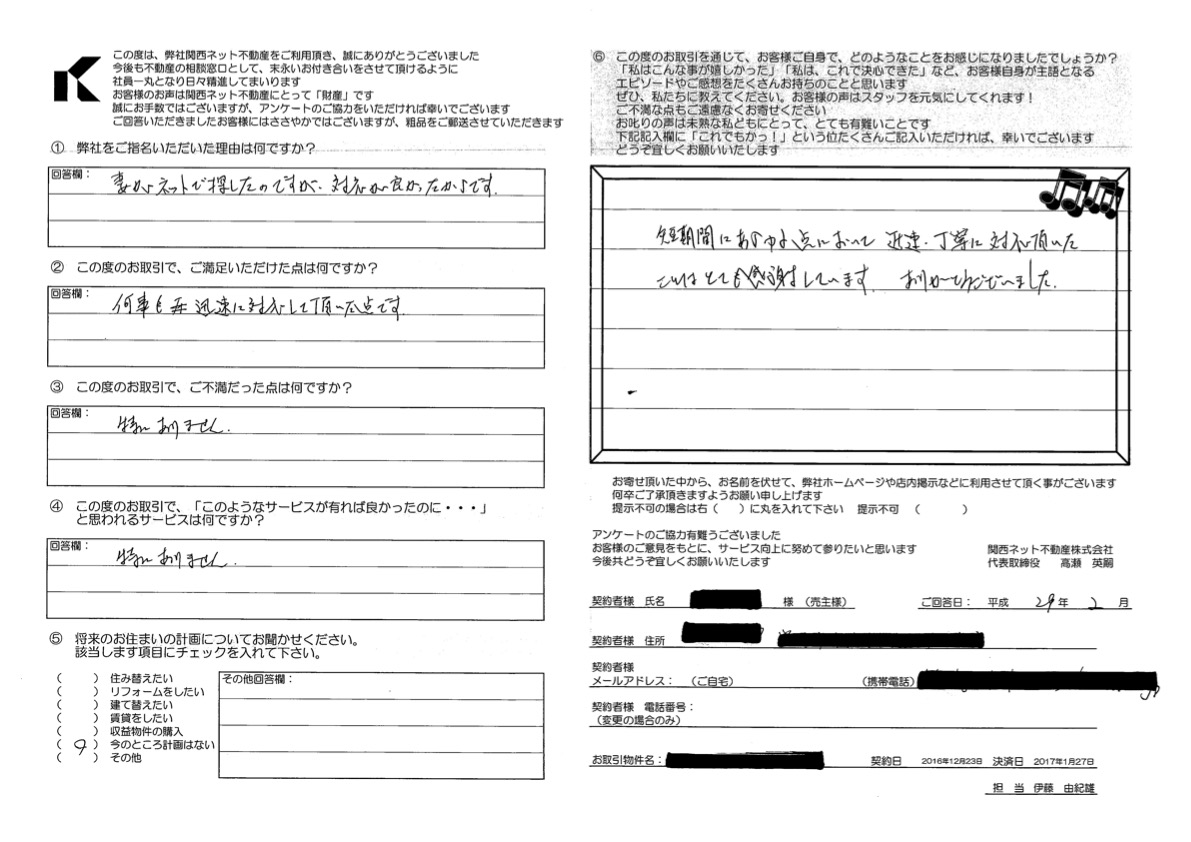 この度は、弊社関西ネット不動産をご利用頂き、誠にありがとうございました
今後も不動産の相談窓口として、末永いお付き合いをさせて頂けるように
社員一丸となり日々精進してまいります
お客様のお声は関西ネット不動産にとって「財産」です
誠にお手数ではございますが、アンケートのご協力をいただければ幸いでございます
ご回答いただきましたお客様にはささやかではございますが、粗品をご郵送させていただきます
① 弊社をご指名いただいた理由は何ですか？
回答欄：
妻がネットで探したのですが、対応が良かったからです。
② この度のお取引で、ご満足いただけた点は何ですか？
回答欄：
何事も 迅速に対応して頂いた点です。
③ この度のお取引で、ご不満だった点は何ですか？
回答欄：
特にありません。
④ この度のお取引で、「このようなサービスが有れば良かったのに・・・」
と思われるサービスは何ですか？
回答欄：
特にありません。
⑤ 将来のお住まいの計画についてお聞かせください。
該当します項目にチェックを入れて下さい。
（　）住み替えたい
（　）リフォームをしたい
（　）建て替えたい
（　）賃貸をしたい
（　）収益物件の購入
（　）今のところ計画はない
（　）その他
その他回答欄：
⑥ この度のお取引を通じて、お客様ご自身で、どのようなことをお感じになりましたでしょうか？
「私はこんな事が嬉しかった」「私は、これで決心できた」など、お客様自身が主語となる
エピソードやご感想をたくさんお持ちのことと思います
ぜひ、私たちに教えてください。お客様の声はスタッフを元気にしてくれます！
ご不満な点もご遠慮なくお寄せください
お叱りの声は未熟な私どもにとって、とても有難いことです
下記記入欄に「これでもかっ！」という位たくさんご記入いただければ、幸いでございます
どうぞ宜しくお願いいたします
短期間にあらゆる点において 迅速・丁寧に対応頂いた
ことはとても感謝しています。 ありがとうございました。
お寄せ頂いた中から、お名前を伏せて、弊社ホームページや店内掲示などに利用させて頂く事がございます
何卒ご了承頂きますようお願い申し上げます
提示不可の場合は右（　）に丸を入れて下さい 提示不可（　）
アンケートのご協力有難うございました
お客様のご意見をもとに、サービス向上に努めて参りたいと思います
今後共どうぞ宜しくお願いいたします
関西ネット不動産株式会社
代表取締役 高瀬 英嗣
契約者様 氏名 様 （売主様） ご回答日： 平成 29年 2月
契約者様 住所
契約者様
メールアドレス： （ご自宅） （携帯電話）
契約者様 電話番号：
（変更の場合のみ）
お取引物件名： 契約日 2016年12月23日 決済日 2017年1月27日
担 当 伊藤 由紀雄